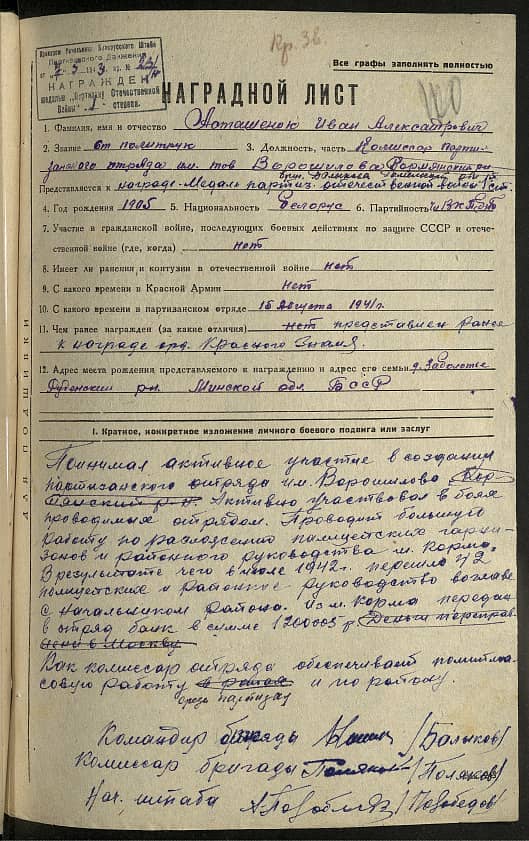 Кр. Зв.
Все графы заполнять полностью
Приказом Начальника Белорусского Штаба
Партизанского Движения
НАГРАЖДЕН
медалью „Партизану Отечественной
Войны" 1 степени.
НАГРАДНОЙ ЛИСТ
1. Фамилия, имя и отчество Иван Александрович
2. Звание ст политрук 3. Должность, часть Комиссар парти-
занского отряда им. тов Ворошилова
Представляется к награде-Медаль партиз. отечественной войны I ст.
4. Год рождения 1905 5. Национальность Белорус 6. Партийность
7. Участие в гражданской войне, последующих боевых действиях по защите СССР и отече-
ственной войне (где, когда) нет
8. Имеет ли ранения и контузии в отечественной войне нет
9. С какого времени в Красной Армии нет
10. С какого времени в партизанском отряде 15 Августа 1941 г.
11. Чем ранее награжден (за какие отличия) нет представлен ранее
к награде орд. Красного Знамя.
12. Адрес места рождения представляемого к награждению и адрес его семьи д. Заболотье
Руденский рн. Минской обл. БССР
ДЛЯ ПОДШИВКИ
I. Краткое, конкретное изложение личного боевого подвига или заслуг
Принимал активное участие в создании
партизанского отряда им. Ворошилово Кор-
мянский р-н. Активно участвовал в боях
проводимых отрядом. Проводит большую
работу по разложению полицейских гарни-
зонов и районного руководства м. Корма.
В результате чего в июле 1942г. перешло 72
полицейских и районное руководство во главе
с начальником района. Из м. Корма передан
в отряд банк в сумме Деньги переправ-
лены в Москву
Как комиссар отряда обеспечивает политмас-
совую работу в районе и по району.
среди партизан
Командир бригады /Балыков/
Комиссар бригады /Поляков/
Нач. штаба /Победов/